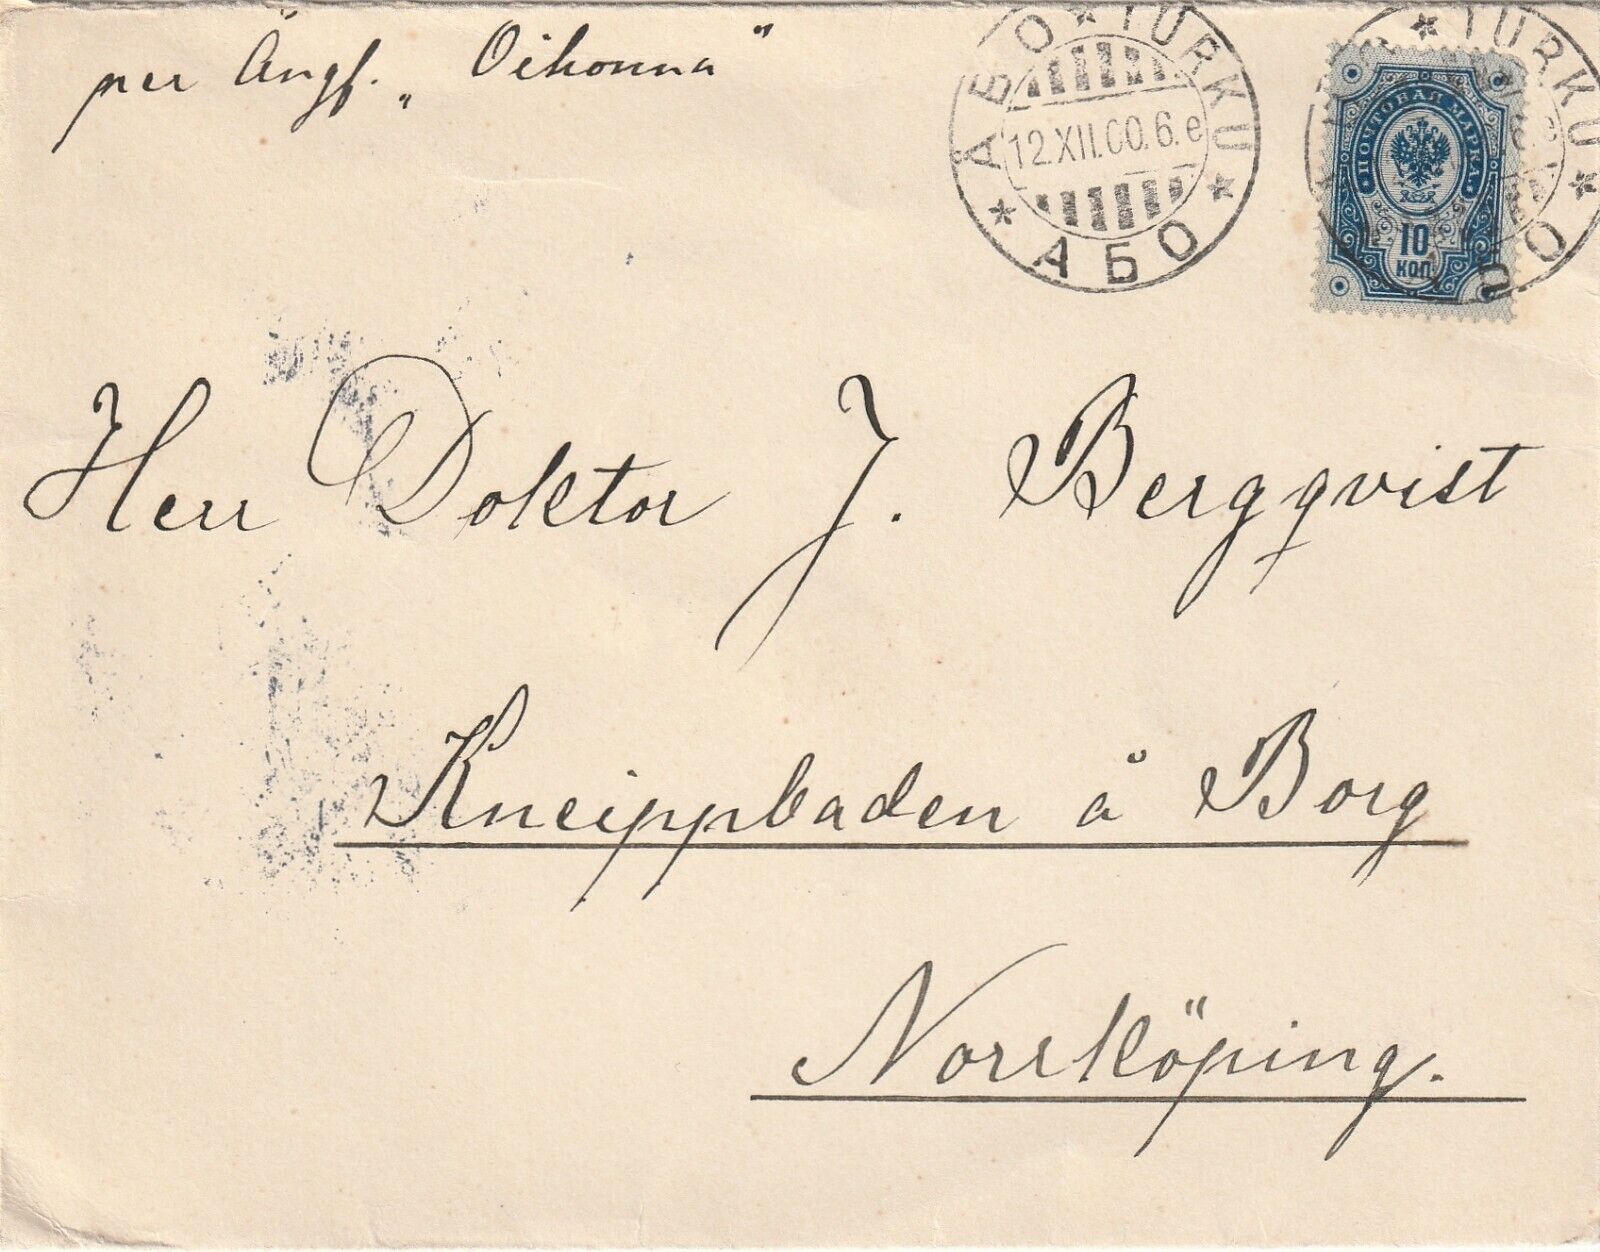 per Ångf. „Oihonna"
ÅBO * TURKU * АБО *
12.XII.00.6.e
TURKU
ПОЧТОВАЯ МАРКА
10
КОП.
Herr Doktor J. Bergqvist
Kneippbaden å Borg
Norrköping.